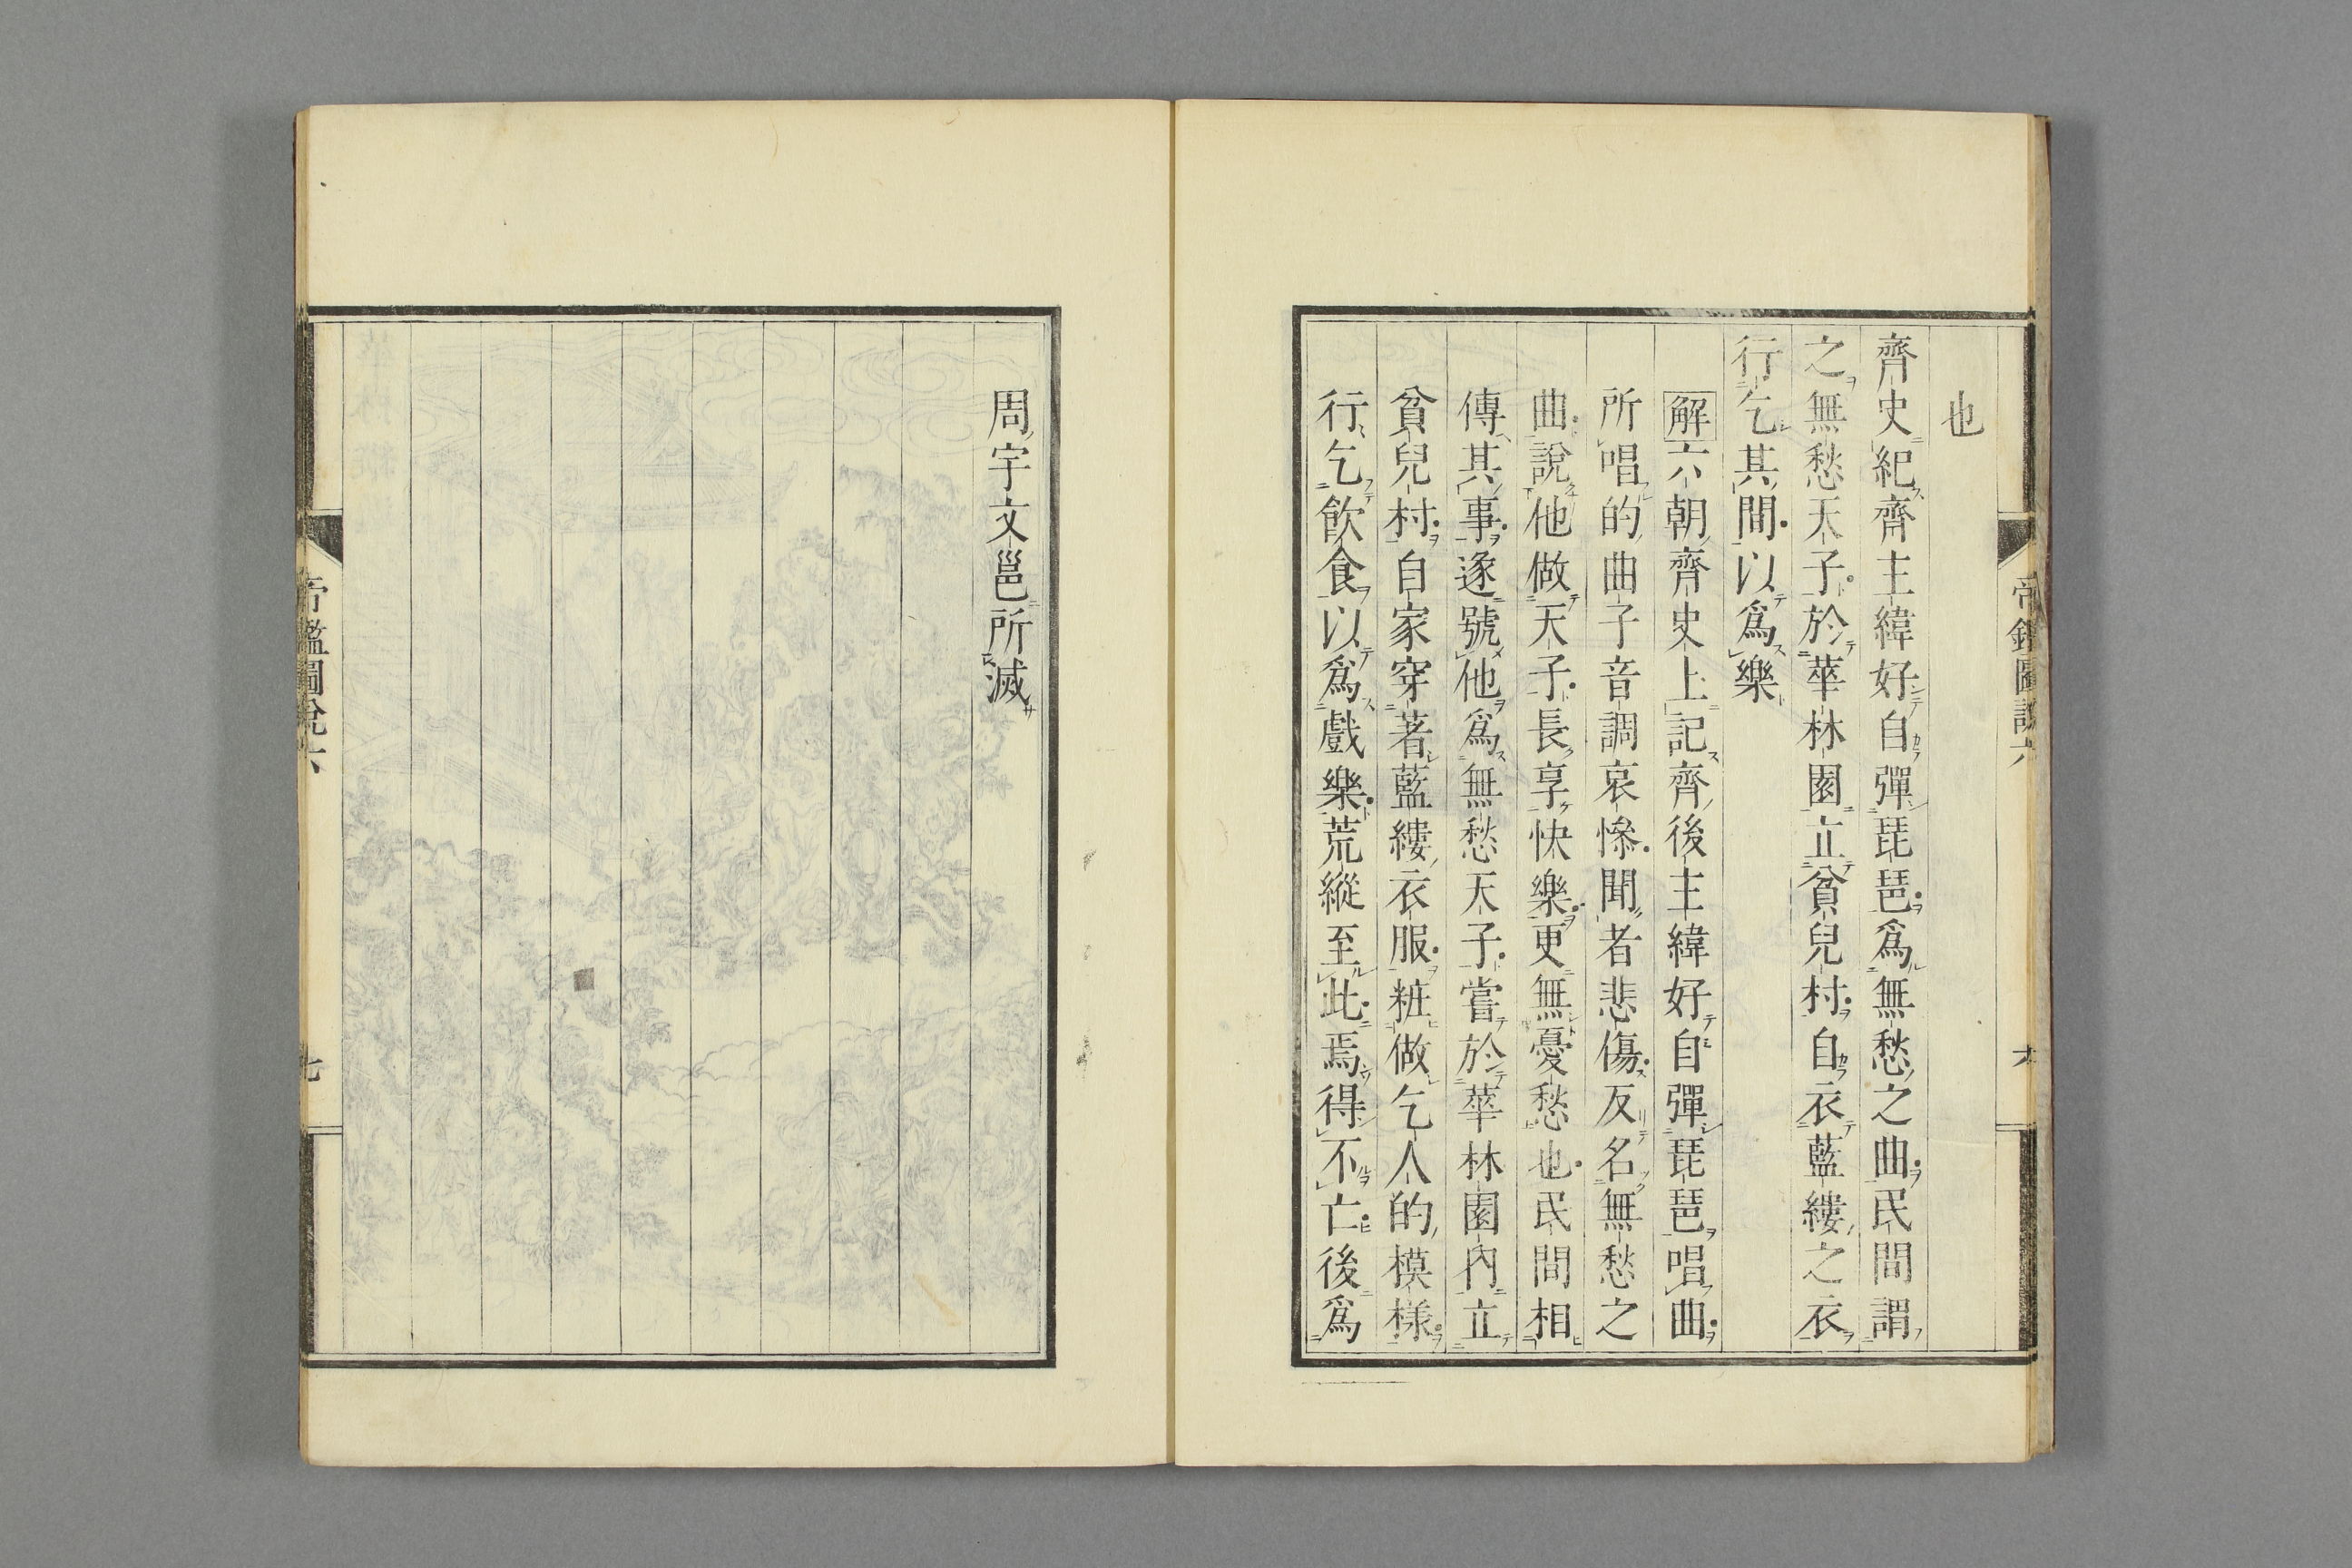 也
齊史紀齊主緯好自彈琵琶爲無愁之曲民間謂
之無愁天子於華林園立貧兒村自衣藍縷之衣
行乞其間以爲樂
解六朝齊史上記齊後主緯好自彈琵琶唱曲
所唱的曲子音調哀慘聞者悲傷反名無愁之
曲說他做天子長享快樂更無憂愁也民間相
傳其事遂號他爲無愁天子嘗於華林園內立
貧兒村自家穿著藍縷衣服粧做乞人的模樣
行乞飮食以爲戲樂荒縱至此焉得不亡後爲
周宇文邕所滅
帝鑑圖說六
七